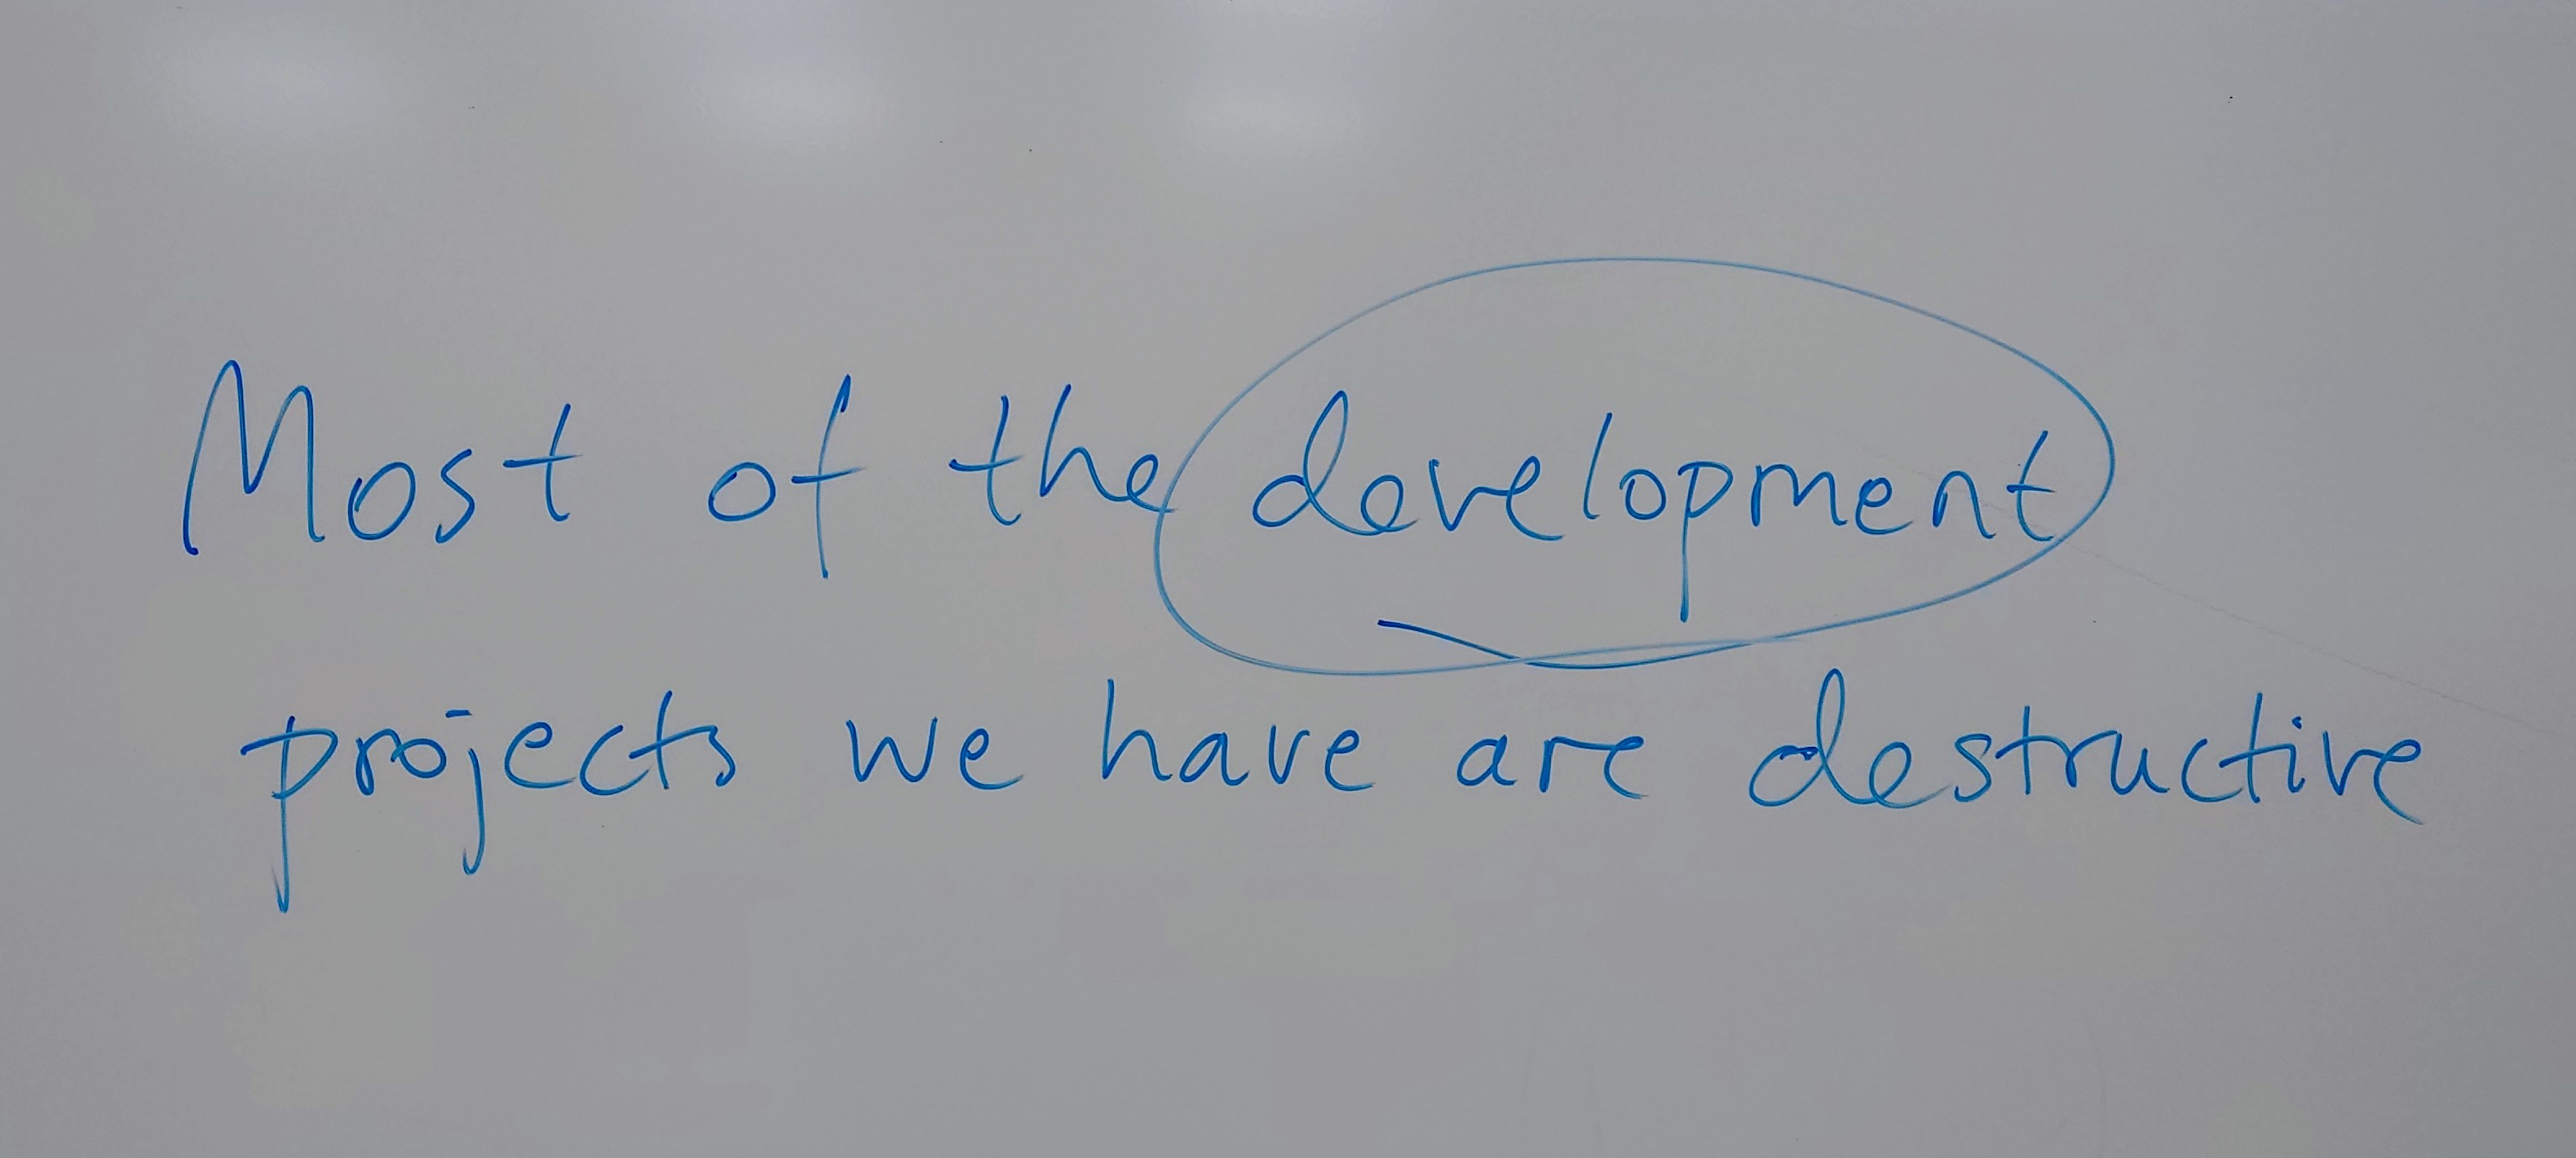 Most of the development
projects we have are destructive